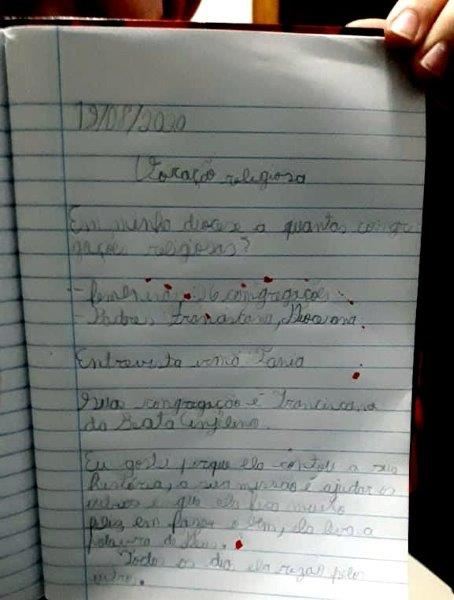 19/08/2020
Vocação religiosa
Em minha diocese a quantas congre
gações religiosas?
- femininas 26 congregações
- Padres Franciscana, Diocesana
Entrevista irmã Tania
Sua congregação é Franciscana
da Beata Angelina.
Eu gostei porque ela contou a sua
história, a sua missão é ajudar os
outros e que ela fica muito
feliz, em fazer o bem, ela leva a
palavra de Deus.
Todos os dia ela rezas pelos
outros.